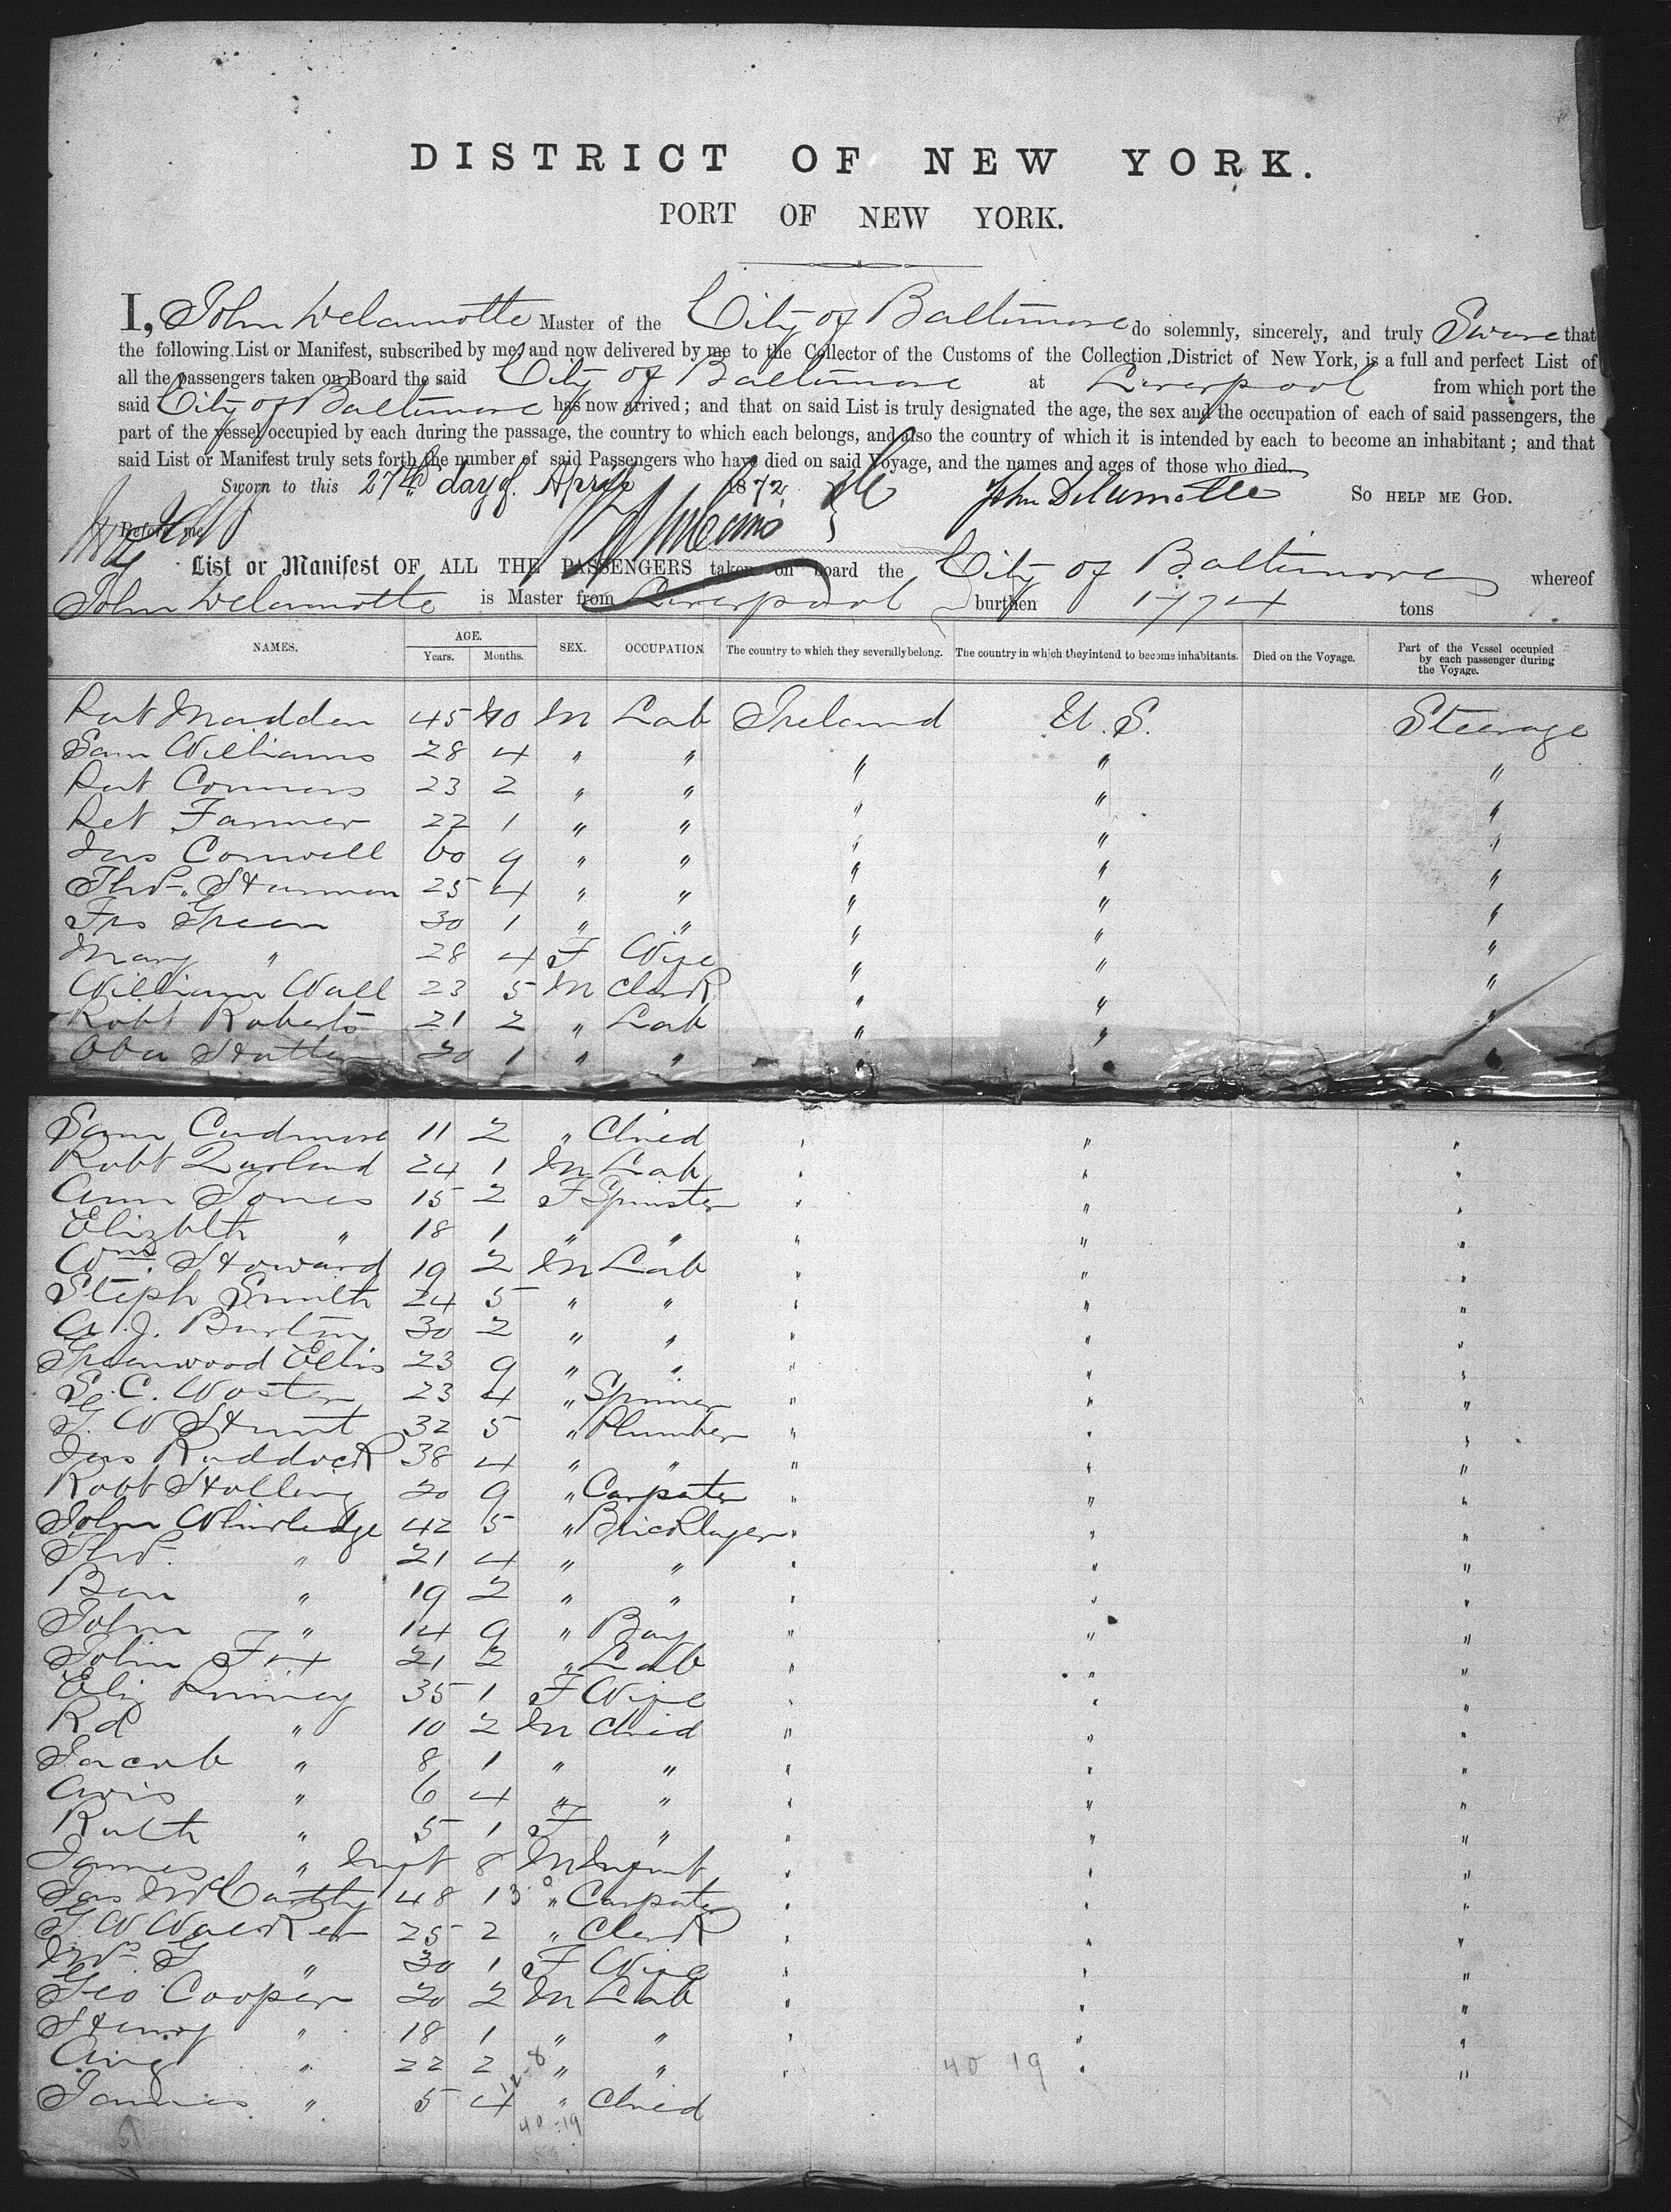 DISTRICT OF NEW YORK.
PORT OF NEW YORK.
I, John Delamotte Master of the City of Baltimore do solemnly, sincerely, and truly Swore that
the following List or Manifest, subscribed by me, and now delivered by me to the Collector of the Customs of the Collection District of New York, is a full and perfect List of
all the passengers taken on Board the said City of Baltimore at Liverpool from which port the
said City of Baltimore has now arrived; and that on said List is truly designated the age, the sex and the occupation of each of said passengers, the
part of the vessel occupied by each during the passage, the country to which each belongs, and also the country of which it is intended by each to become an inhabitant; and that
said List or Manifest truly sets forth the number of said Passengers who have died on said Voyage, and the names and ages of those who died.
Sworn to this 27th day of April 1872 John Delamotte SO HELP ME GOD.
Before me
List or Manifest OF ALL THE PASSENGERS taken on board the City of Baltimore whereof
John Delamotte is Master from Liverpool burthen 1774 tons
NAMES. AGE. Years. Months. SEX. OCCUPATION The country to which they severally belong. The country in which they intend to become inhabitants. Died on the Voyage. Part of the Vessel occupied by each passenger during the Voyage.
Pat Madden 45 10 M Lab Ireland U.S. Steerage
Sam Williams 28 4 " " " " "
Pat Connors 23 2 " " " " "
Pet Farmer 22 1 " " " " "
Jas Cornwell 60 9 " " " " "
Thos Harman 25 4 " " " " "
Frs Green 30 1 " " " " "
Mary " 28 4 F Wife " " "
William Wall 23 5 M Clerk " " "
Robt Roberts 21 2 " Lab " " "
20 1 " " " " "
Sam Cudmore 11 2 " Child " " "
Robt 24 1 M Lab " " "
Ann Jones 15 2 F Spinster " " "
Elizbth " 18 1 " " " " "
Wm. Howard 19 2 M Lab " " "
Steph Smith 24 5 " " " " "
A. J. Burton 30 2 " " " " "
Greenwood Ellis 23 9 " " " " "
C. 23 4 " Spinner " " "
G. W Hunt 32 5 " Plumber " " "
Jas Ruddock 38 4 " " " " "
Robt Holling 20 9 " Carpater " " "
John Whirledge 42 5 " Bricklayer " " "
Thos. " 21 4 " " " " "
Ben " 19 2 " " " " "
John " 14 9 " Boy " " "
John Fox 21 2 " Lab " " "
Eliz 35 1 F Wife " " "
Rd " 10 2 M Child " " "
Jacob " 8 1 " " " " "
Avis " 6 4 " " " " "
Ruth " 5 1 F " " " "
James " Inft 8 M Infant " " "
Jas McCarthy 48 13 " Carpater " " "
G W Walker 25 2 " Clerk " " "
Mrs G " 30 1 F Wife " " "
Geo Cooper 20 2 M Lab " " "
Henry " 18 1 " " " " "
Aug " 22 2 " " " 40 19 " "
James " 5 4 " Child
40-19